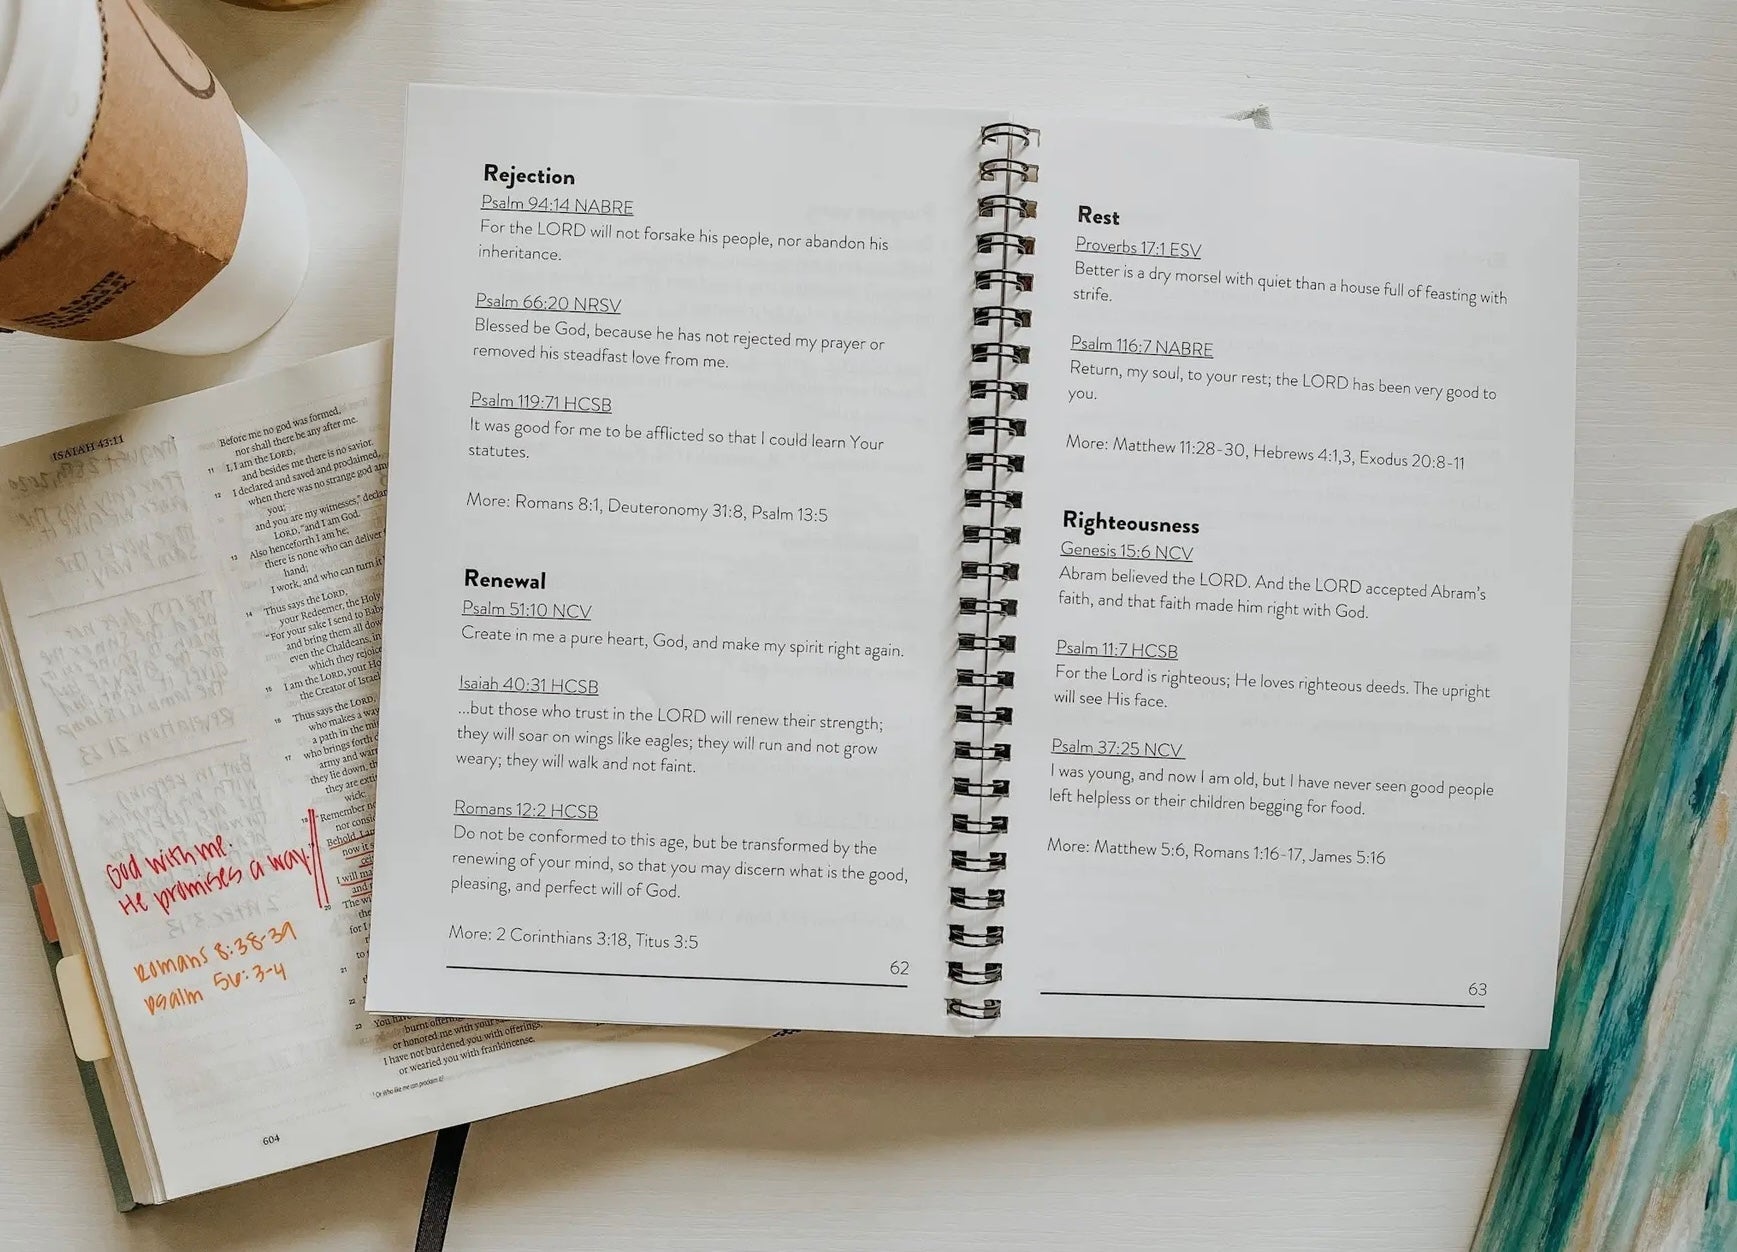 Rejection
Psalm 94:14 NABRE
For the LORD will not forsake his people, nor abandon his
inheritance.
Psalm 66:20 NRSV
Blessed be God, because he has not rejected my prayer or
removed his steadfast love from me.
Psalm 119:71 HCSB
It was good for me to be afflicted so that I could learn Your
statutes.
More: Romans 8:1, Deuteronomy 31:8, Psalm 13:5
Renewal
Psalm 51:10 NCV
Create in me a pure heart, God, and make my spirit right again.
Isaiah 40:31 HCSB
...but those who trust in the LORD will renew their strength;
they will soar on wings like eagles; they will run and not grow
weary; they will walk and not faint.
Romans 12:2 HCSB
Do not be conformed to this age, but be transformed by the
renewing of your mind, so that you may discern what is the good,
pleasing, and perfect will of God.
More: 2 Corinthians 3:18, Titus 3:5
62
Rest
Proverbs 17:1 ESV
Better is a dry morsel with quiet than a house full of feasting with
strife.
Psalm 116:7 NABRE
Return, my soul, to your rest; the LORD has been very good to
you.
More: Matthew 11:28-30, Hebrews 4:1,3, Exodus 20:8-11
Righteousness
Genesis 15:6 NCV
Abram believed the LORD. And the LORD accepted Abram's
faith, and that faith made him right with God.
Psalm 11:7 HCSB
For the Lord is righteous; He loves righteous deeds. The upright
will see His face.
Psalm 37:25 NCV
I was young, and now I am old, but I have never seen good people
left helpless or their children begging for food.
More: Matthew 5:6, Romans 1:16-17, James 5:16
63
ISAIAH 43:11
Before me no god was formed,
nor shall there be any after me.
11 I, I am the LORD,
and besides me there is no savior.
12 I declared and saved and proclaimed,
when there was no strange god am
you;
and you are my witnesses," declar
LORD, "and I am God.
13 Also henceforth I am he;
there is none who can deliver
hand;
I work, and who can turn it
14 Thus says the LORD,
your Redeemer, the Holy
"For your sake I send to Baby
and bring them all dow
even the Chaldeans, in
which they rejoice
15 I am the LORD, your Ho
the Creator of Israel
16 Thus says the LORD,
who makes a way
a path in the mi
17 who brings forth c
army and warr
they lie down, th
they are exti
wick:
18 "Remember no
nor consi
Behold, I am
now it s
I will ma
and r
20 The wi
the
for I
to
21
22
You have
23
burnt offerin
or honored me with your sa
I have not burdened you with offerings,
or wearied you with frankincense.
604
God with me.
He promises a way.
Romans 8:38-39
Psalm 56:3-4